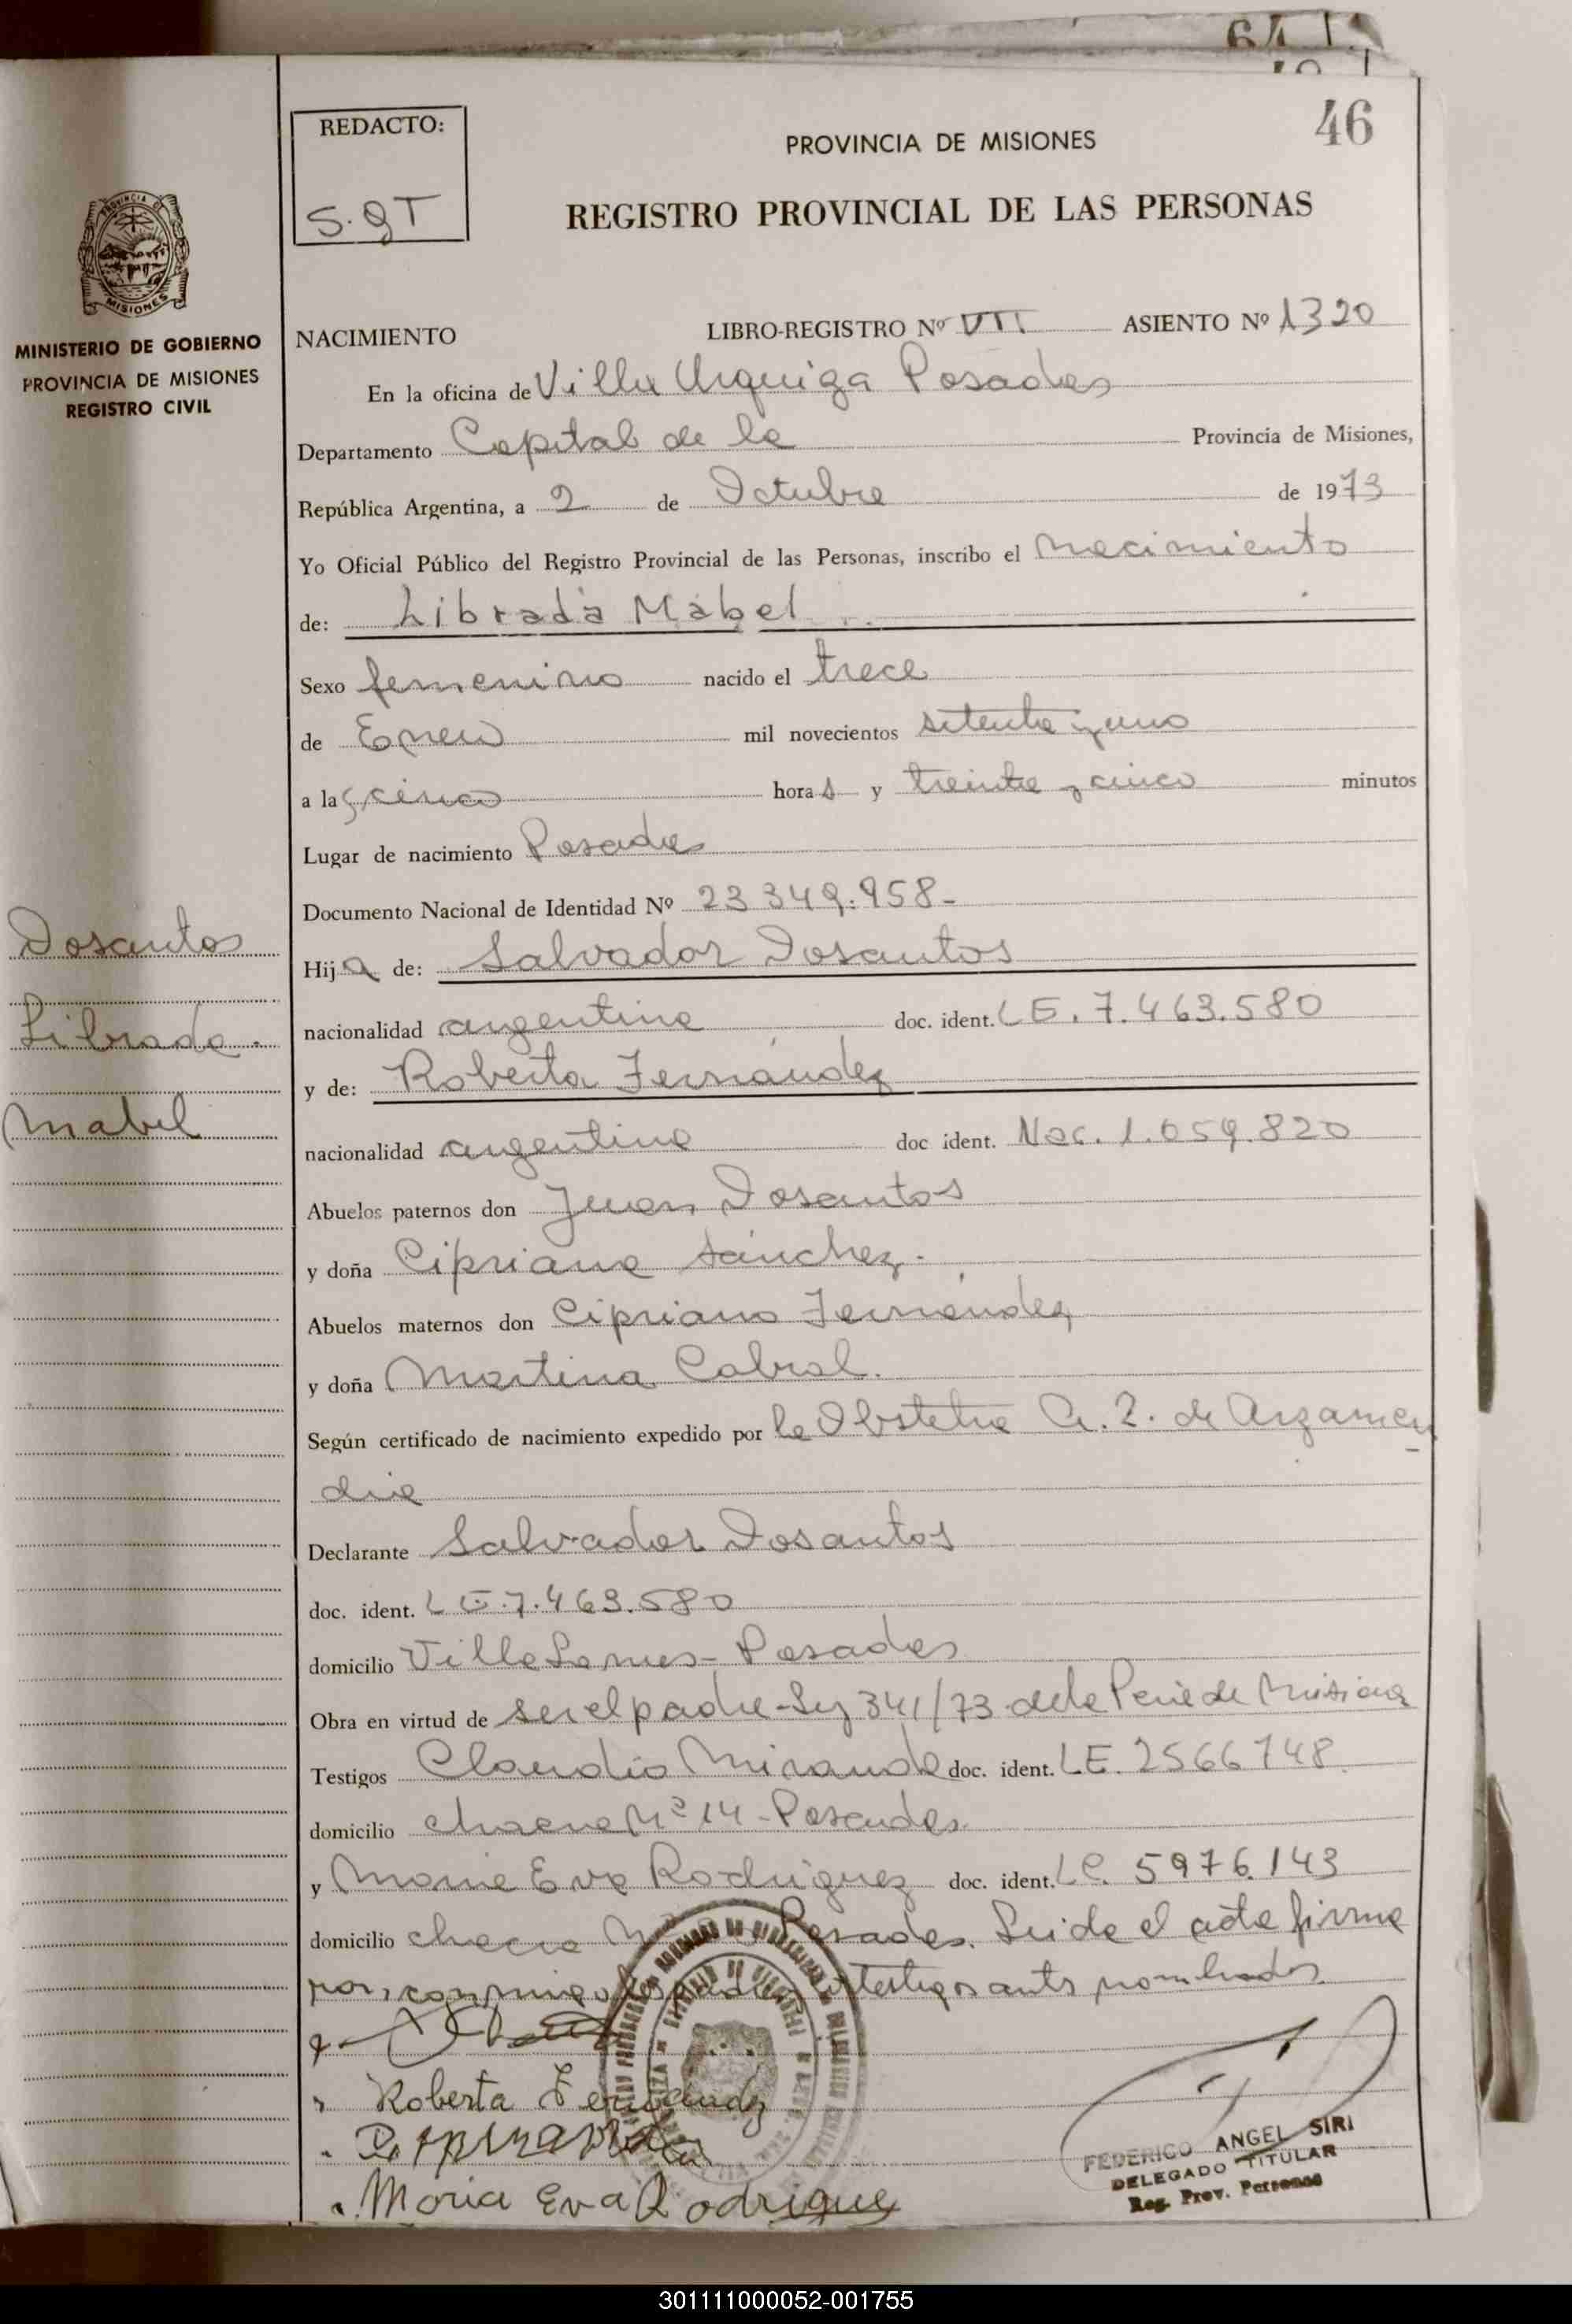 64
46
REDACTO:
S.QT
PROVINCIA DE MISIONES
REGISTRO PROVINCIAL DE LAS PERSONAS
PROVINCIA DE
MISIONES
MINISTERIO DE GOBIERNO
PROVINCIA DE MISIONES
REGISTRO CIVIL
NACIMIENTO LIBRO-REGISTRO Nº VII ASIENTO Nº 1320
En la oficina de Villa Urquiza Posadas
Departamento Capital de la Provincia de Misiones,
República Argentina, a 2 de Octubre de 1973
Yo Oficial Público del Registro Provincial de las Personas, inscribo el Nacimiento
de: Librada Mabel
Sexo femenino nacido el trece
de Enero mil novecientos setenta y uno
a las cinco horas y treinta y cinco minutos
Lugar de nacimiento Posadas
Documento Nacional de Identidad Nº 23 349.958-
Dosantos
Librada.
Mabel
Hija de: Salvador Dosantos
nacionalidad argentina doc. ident. LE. 7.463.580
y de: Roberta Fernández
nacionalidad argentina doc ident. Nac. 1.059.820
Abuelos paternos don Juan Dosantos
y doña Cipriana Sánchez.
Abuelos maternos don Cipriano Fernández
y doña Martina Cabral.
Según certificado de nacimiento expedido por la Obstetra A. Z. de Arzamen
dia
Declarante Salvador Dosantos
doc. ident. LE 7.463.580
domicilio Villa Lanus - Posadas
Obra en virtud de ser el padre - Ley 341/73 de la Pcia de Misiones
Testigos Claudio Miranda doc. ident. LE. 2566748
domicilio chacra Nº 14 - Posadas
y Maria Eva Rodriguez doc. ident. LC. 5976.143
domicilio chacra Posadas. Leida el acta firma
ron, conmigo testigos antes nombrados
Roberta Fernandez
Maria Eva Rodrigue
FEDERICO ANGEL SIRI
DELEGADO TITULAR
Reg. Prov. Personas
301111000052-001755